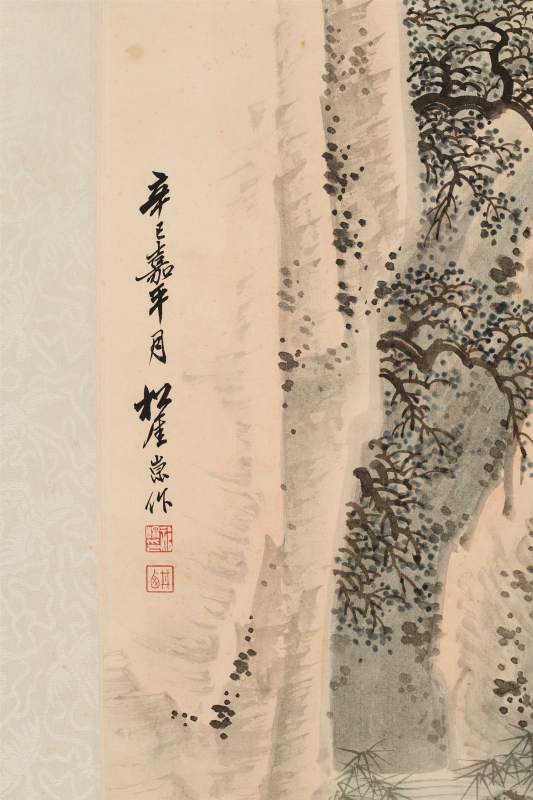 辛巳嘉平月 松崖崇作